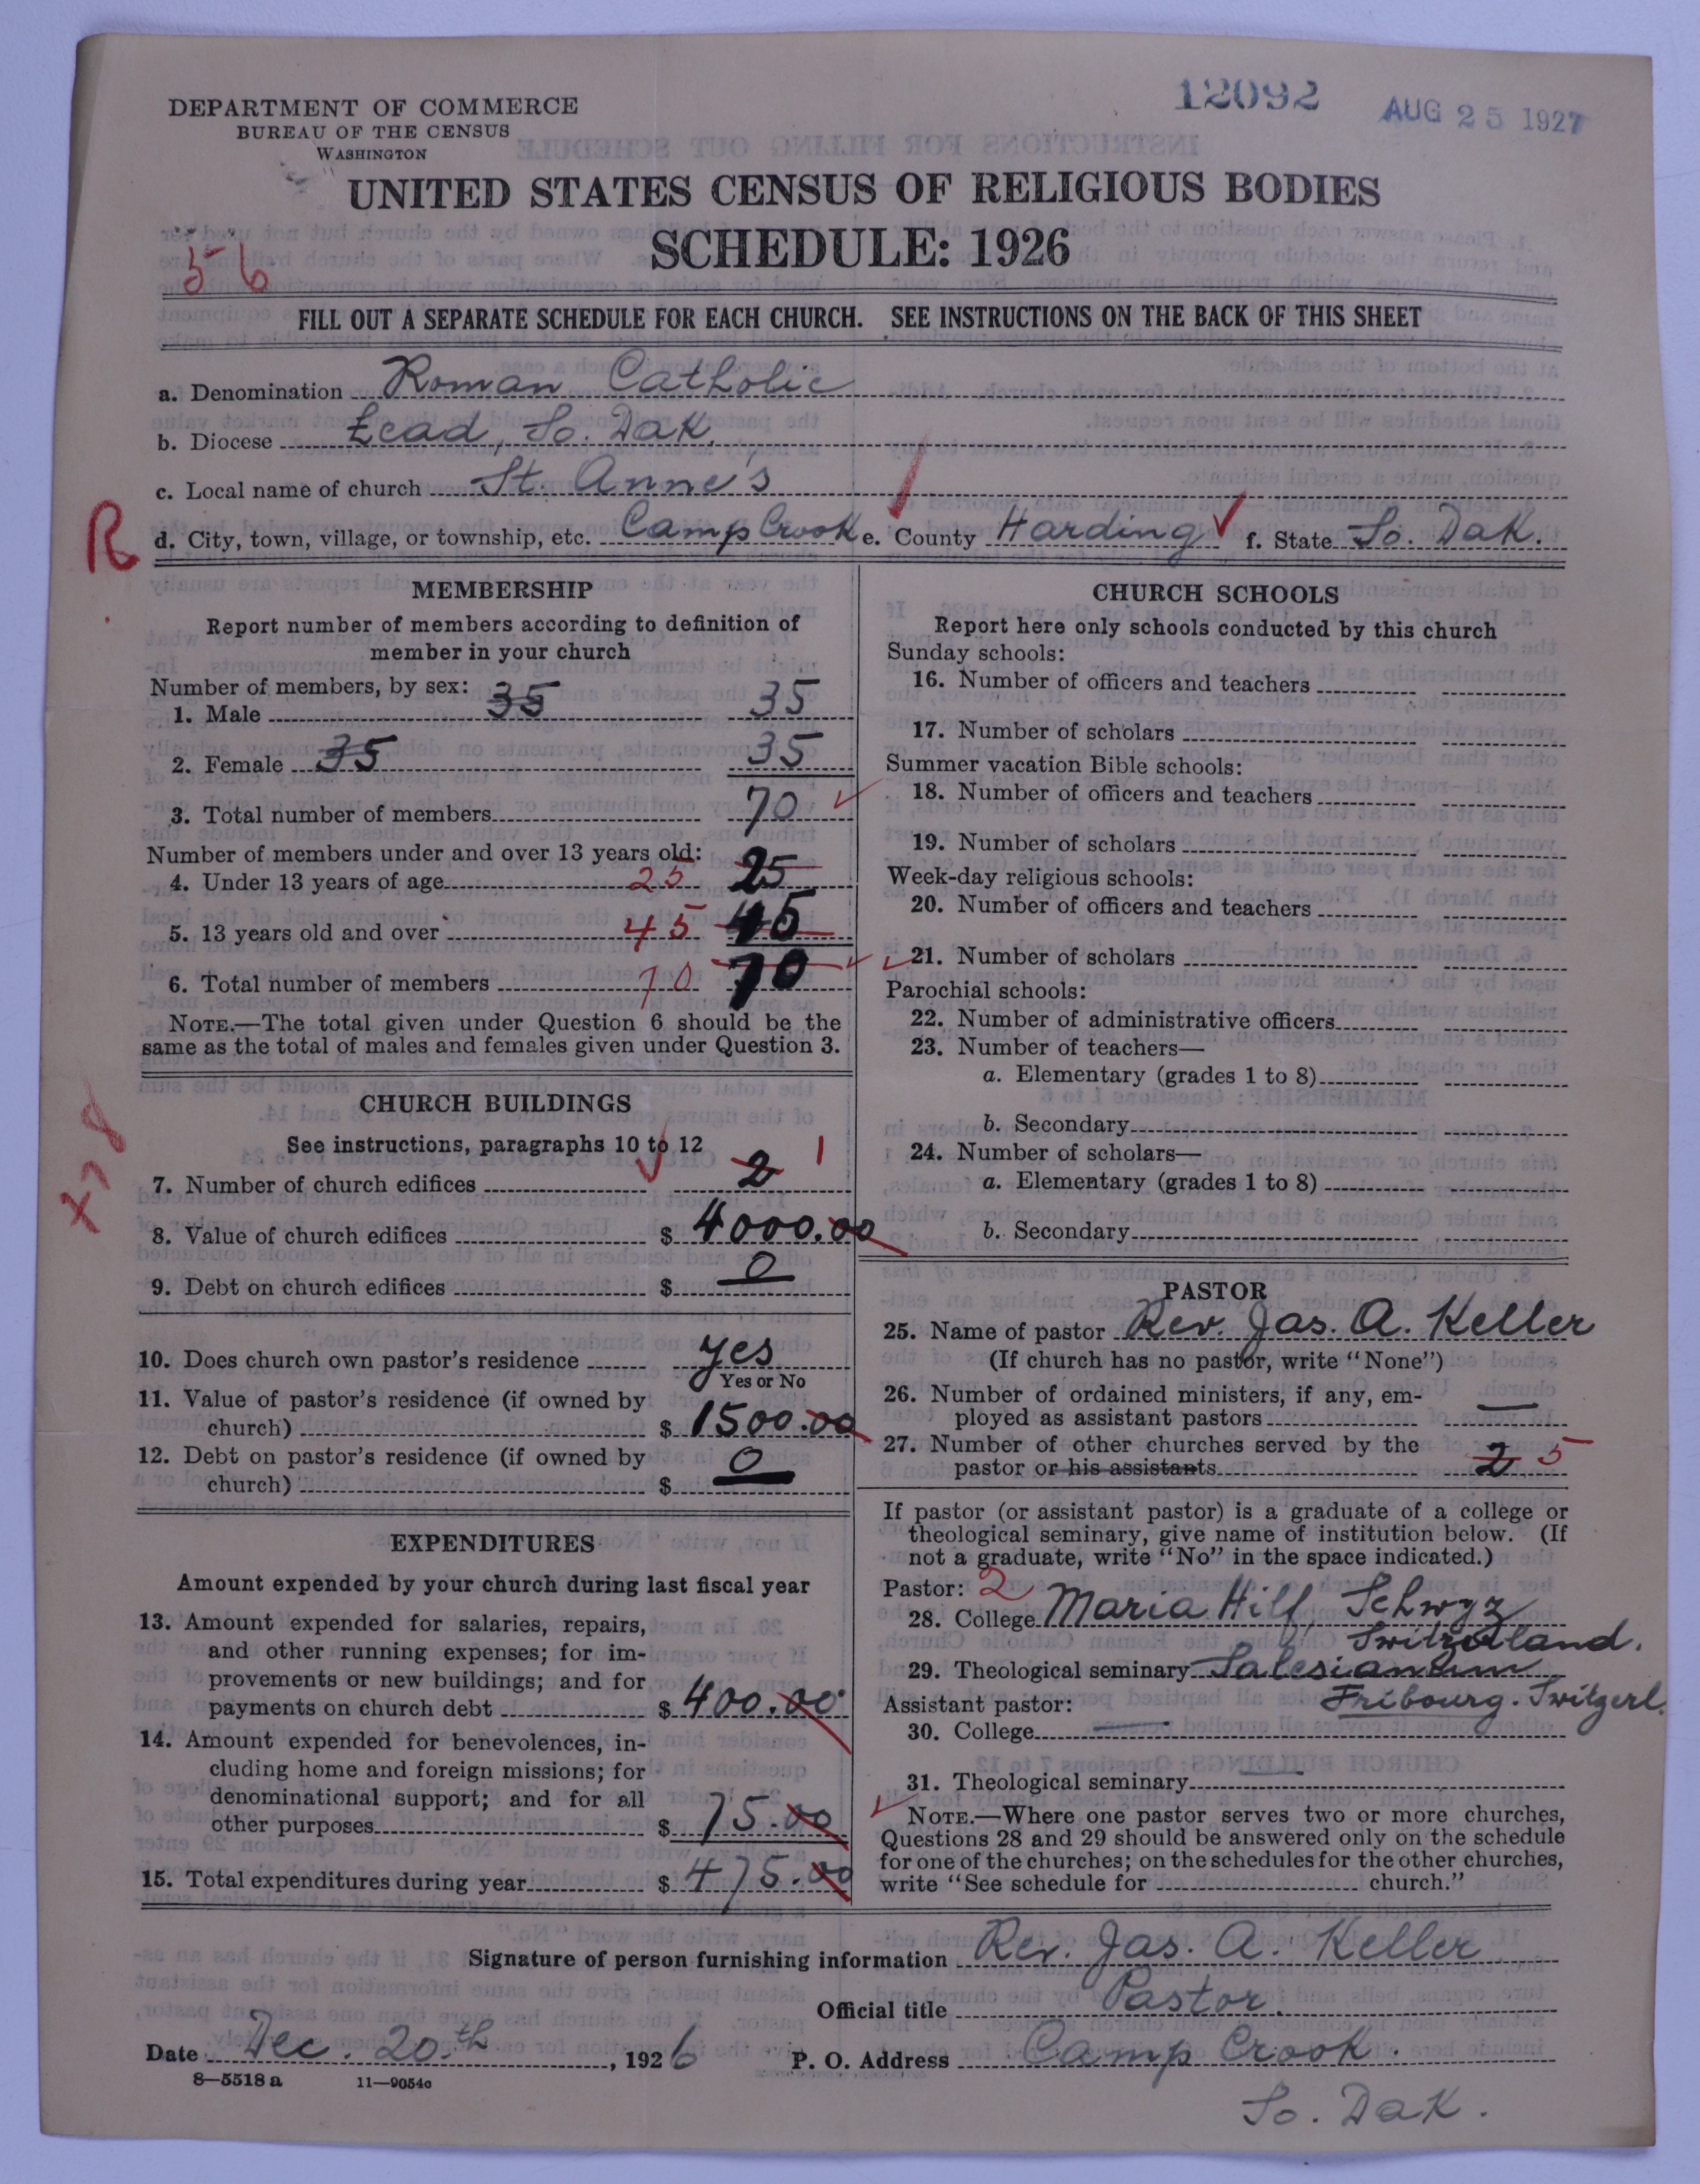 DEPARTMENT OF COMMERCE
BUREAU OF THE CENSUS
WASHINGTON
12092
AUG 25 1927
UNITED STATES CENSUS OF RELIGIOUS BODIES
SCHEDULE: 1926
56
FILL OUT A SEPARATE SCHEDULE FOR EACH CHURCH. SEE INSTRUCTIONS ON THE BACK OF THIS SHEET
a. Denomination Roman Catholic
b. Diocese Lead, So. Dak.
c. Local name of church St. Anne's
R d. City, town, village, or township, etc. Camp Crook e. County Harding f. State So. Dak.
MEMBERSHIP
Report number of members according to definition of
member in your church
Number of members, by sex:
1. Male 35 35
2. Female 35 35
3. Total number of members 70
Number of members under and over 13 years old:
4. Under 13 years of age 25 25
5. 13 years old and over 45 45
6. Total number of members 70 70
NOTE.—The total given under Question 6 should be the
same as the total of males and females given under Question 3.
CHURCH BUILDINGS
See instructions, paragraphs 10 to 12
7. Number of church edifices 2 1
8. Value of church edifices $ 4000.00
9. Debt on church edifices $ 0
10. Does church own pastor's residence yes
Yes or No
11. Value of pastor's residence (if owned by
church) $ 1500.00
12. Debt on pastor's residence (if owned by
church) $ 0
EXPENDITURES
Amount expended by your church during last fiscal year
13. Amount expended for salaries, repairs,
and other running expenses; for im-
provements or new buildings; and for
payments on church debt $ 400.00
14. Amount expended for benevolences, in-
cluding home and foreign missions; for
denominational support; and for all
other purposes $ 75.00
15. Total expenditures during year $ 475.00
CHURCH SCHOOLS
Report here only schools conducted by this church
Sunday schools:
16. Number of officers and teachers
17. Number of scholars
Summer vacation Bible schools:
18. Number of officers and teachers
19. Number of scholars
Week-day religious schools:
20. Number of officers and teachers
21. Number of scholars
Parochial schools:
22. Number of administrative officers
23. Number of teachers—
a. Elementary (grades 1 to 8)
b. Secondary
24. Number of scholars—
a. Elementary (grades 1 to 8)
b. Secondary
PASTOR
25. Name of pastor Rev. Jas. A. Keller
(If church has no pastor, write "None")
26. Number of ordained ministers, if any, em-
ployed as assistant pastors —
27. Number of other churches served by the
pastor or his assistants 2 5
If pastor (or assistant pastor) is a graduate of a college or
theological seminary, give name of institution below. (If
not a graduate, write "No" in the space indicated.)
Pastor: 2
28. College Maria Hilf Schwyz
Switzerland.
29. Theological seminary Salesianum
Fribourg. Switzerl.
Assistant pastor:
30. College —
31. Theological seminary
NOTE.—Where one pastor serves two or more churches,
Questions 28 and 29 should be answered only on the schedule
for one of the churches; on the schedules for the other churches,
write "See schedule for church."
Signature of person furnishing information Rev. Jas. A. Keller
Official title Pastor.
Date Dec. 20.th, 1926
P. O. Address Camp Crook.
So. Dak.
8—5518 a 11—9054c